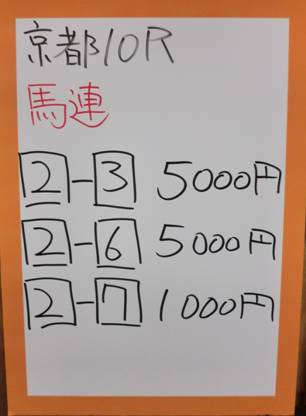 京都10R
馬連
2-3 5000円
2-6 5000円
2-7 1000円